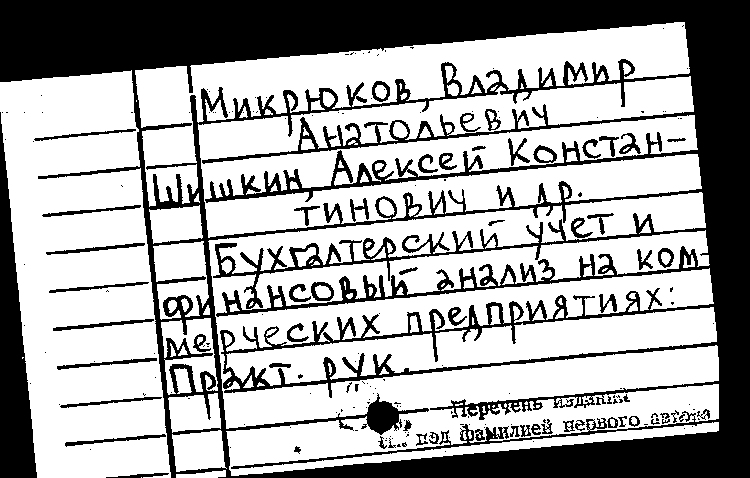 Микрюков, Владимир
Анатольевич
Шишкин, Алексей Констан-
тинович и др.
Бухгалтерский учет и
финансовый анализ на ком-
мерческих предприятиях:
Практ. рук.
Перечень изданий
см. под фамилией первого автора